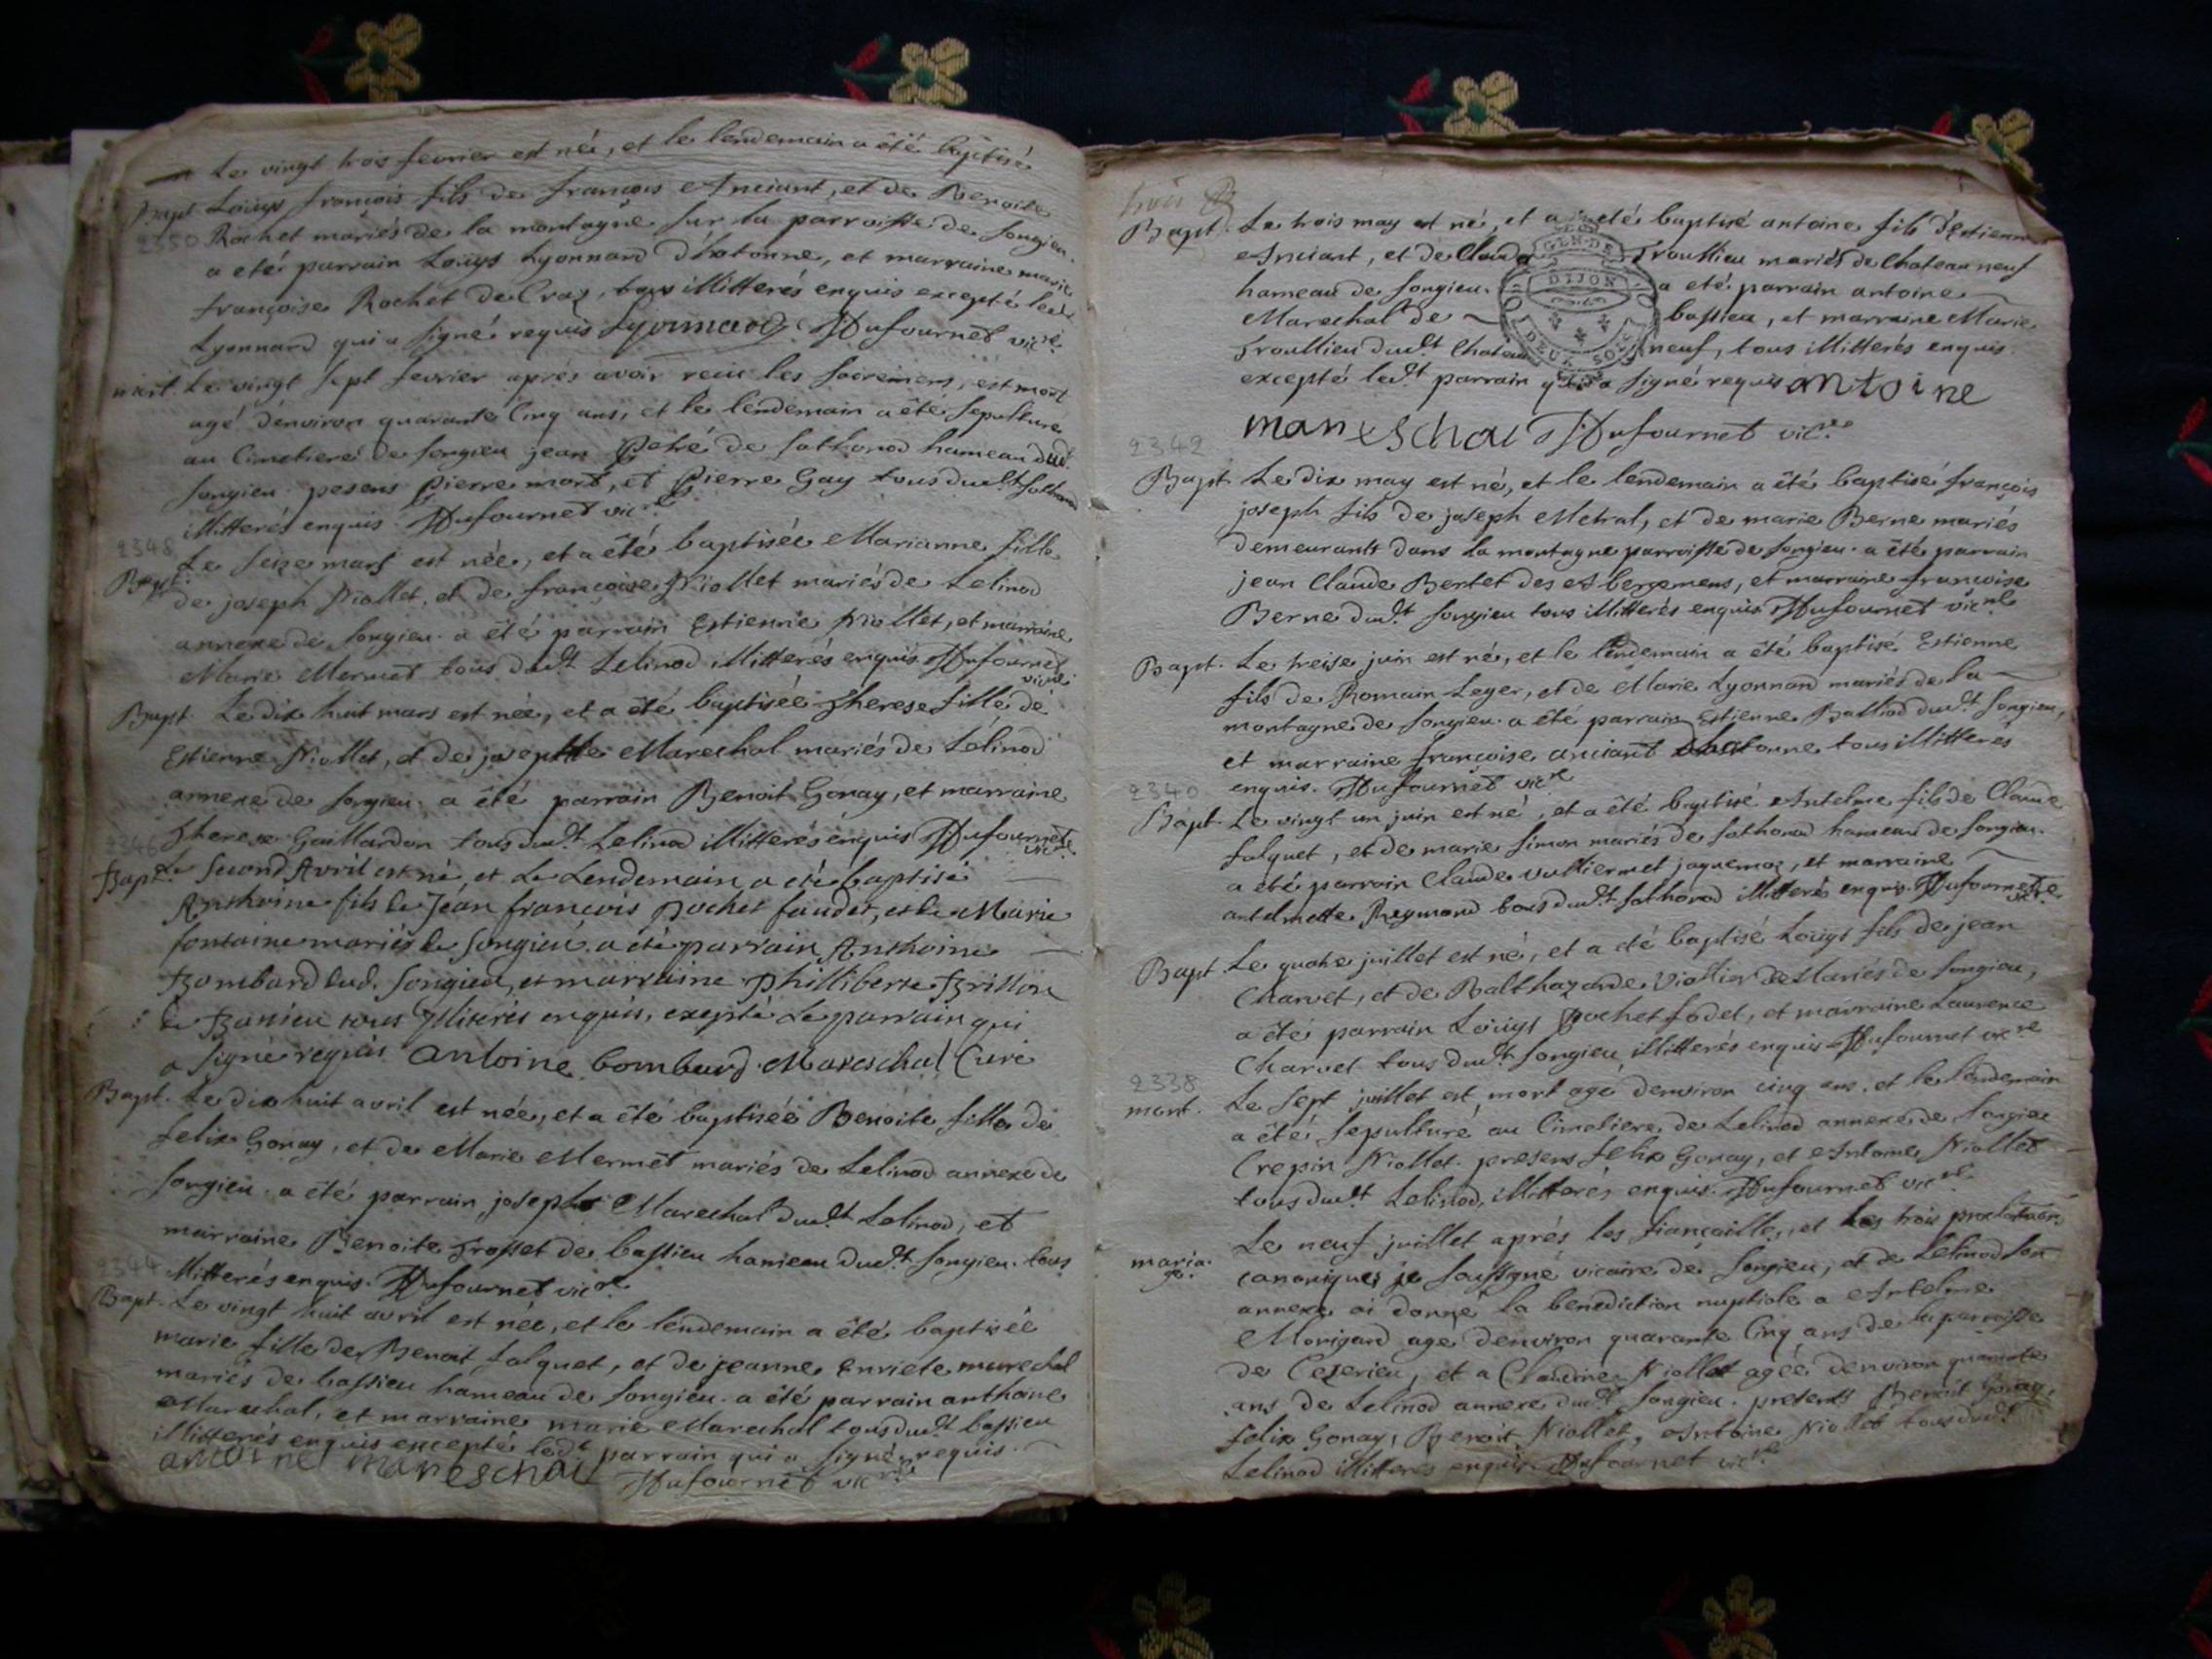 Le vingt trois fevrier est né, et le lendemain a été baptisé
Bapt. Loüys francois fils de francois Anciant, et de Benoite
2350 Rochet mariés de la montagne sur la parroisse de Songieu.
a eté parrain Loüys Lyonnard d'hotonne, et marraine marie
françoise Rochet de Craz, tous illitterés enquis excepté led.
Lyonnard qui a signé requis Lyonnard Dufournet vicre.
mort. Le vingt sept fevrier apres avoir recu les sacremens, est mort
agé d'environ quarante cinq ans, et le lendemain a été sepulturé
au Cimetiere de Songieu jean de sothonod hameau dud.
Songieu. presens pierre mort, et pierre Gay tous dudt sothonod
illitterés enquis. Dufournet vicre.
2348
Bapt. Le seize mars est née, et a été baptisée Marianne fille
de joseph Niollet, et de francoise Niollet mariés de Lelinod
annexe de Songieu. a été parrain Estienne Niollet, et marraine
Marie Mermet tous dudt Lelinod illitterés enquis Dufournet
vicre.
Bapt. Le dix huit mars est née, et a été baptisée Therese fille de
Estienne Niollet, et de josephte Marechal mariés de Lélinod
annexe de Songieu. a été parrain Benoit Gonay, et marraine
Therese Gaillardon tous dudt Lelinod illitterés enquis Dufournet
vicre.
2346
Bapt. Le second Avril est né, et Le Lendemain a eté baptisé
Anthoine fils de Jéan françois pochet faudet, et de Marie
fontaine mariés de Songieu. a été parrain Anthoine
Bombard dud. Songieu, et marraine Philliberte Brillon
de Bassieu tous Illiterés enquis, exepté Le parrain qui
a signé requis antoine bombard. Mareschal Curé
Bapt. Le dix huit avril est née, et a été baptisée Benoite fille de
felix Gonay, et de Marie Mermet mariés de Lelinod annexe de
Songieu. a été parrain joseph Marechal dudt Lelinod, et
marraine Benoite trosset de bassieu hameau dudt Songieu. tous
2344 illitterés enquis. Dufournet vicre.
Bapt. Le vingt huit avril est née, et le lendemain a été baptisée
marie fille de Benoit falquet, et de jeanne Enriete marechal
mariés de bassieu hameau de Songieu. a été parrain anthoine
Marechal, et marraine marie Marechal tous dudt bassieu
illitterés enquis excepté ledt parrain qui a signé requis.
antoine mareschal Dufournet vicre.
trois
Bapt. Le trois may est né, et a eté baptisé antoine fils d'Estienne
Anciant, et de Clauda Troullieu mariés de Chateau neuf
hameau de Songieu. a eté parrain antoine
Marechal de bassieu, et marraine Marie
Troullieu dudt Chateau neuf, tous illitterés enquis.
excepté ledt parrain qui a signé requis antoine
mareschal Dufournet vicre.
GEN. DE
DIJON
DEUX SOLS
2342
Bapt. Le dix may est né, et le lendemain a été baptisé françois
joseph fils de joseph Metral, et de marie Berne mariés
demeurants dans la montagne parroisse de Songieu. a été parrain
jean Claude Bertet des Abergemens, et marraine francoise
Berne dudt Songieu tous illitterés enquis Dufournet vicre
Bapt. Le treise juin est né, et le lendemain a été baptisé Estienne
fils de Romain Leger, et de Marie Lyonnard mariés de la
montagne de Songieu. a été parrain Estienne Balliod dudt Songieu,
et marraine francoise anciant d'hotonne tous illitterés
enquis. Dufournet vicre
2340
Bapt. Le vingt un juin est né, et a été baptisé Antelme fils de Claude
falquet, et de marie simon mariés de sothonod hameau de Songieu.
a été parrain Claude vulliermet jaquemoz, et marraine
antelmette Reymond tous dudt sothonod illitterés enquis. Dufournet
vicre.
Bapt. Le quatre juillet est né, et a été baptisé Loüys fils de jean
Charvet, et de Balthazarde Viollier mariés de Songieu,
a été parrain Loüys pochet fodet, et marraine Laurence
Charvet tous dudt Songieu illitterés enquis Dufournet vicre
2338
mort. Le sept juillet est mort agé d'environ cinq ans, et le lendemain
a été sepulturé au Cimetiere de Lelinod annexe de Songieu
Crepin Niollet. presens felix Gonay, et Antoine Niollet
tous dudt Lelinod, illitterés enquis. Dufournet vicre.
maria-
ge. Le neuf juillet aprés les fiançailles, et les trois proclamaons
canoniques je soussigné vicaire de Songieu, et de Lelinod son
annexe ai donné la benediction nuptiale a Antelme
Monigard agé d'environ quarante cinq ans de la parroisse
de Ceyzerieu, et a Claudine Niollet agée d'environ quarante
ans de Lelinod annexe dudt Songieu. presents Benoit Gonay,
felix Gonay, Benoit Niollet, Antoine Niollet tous dudt
Lelinod illitterés enquis. Dufournet vicre.